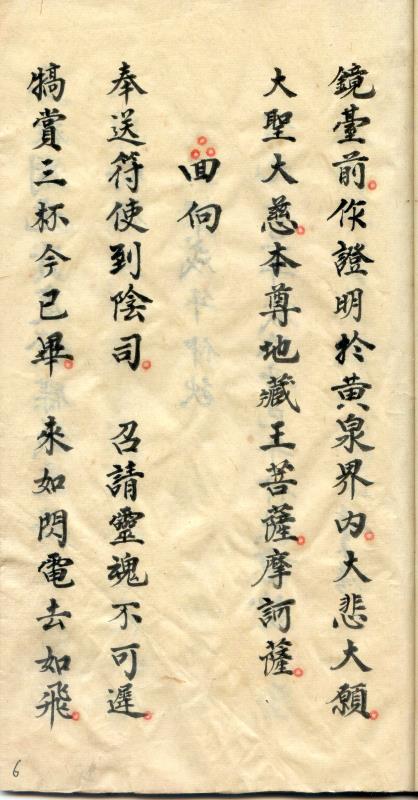 鏡臺前。作證明於黃泉界内。大悲大願。
大聖大慈。本尊地藏王菩薩。摩訶薩。
囬向
奉送符使到陰司。 召請靈魂不可遲。
犒賞三杯今已畢。來如閃電去如飛。
6